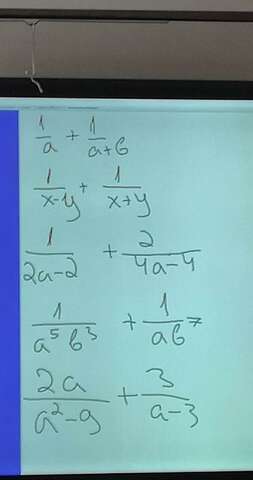 1/a + 1/(a+b)
1/(x-y) + 1/(x+y)
1/(2a-2) + 2/(4a-4)
1/(a⁵b³) + 1/(ab⁷)
2a/(a²-9) + 3/(a-3)